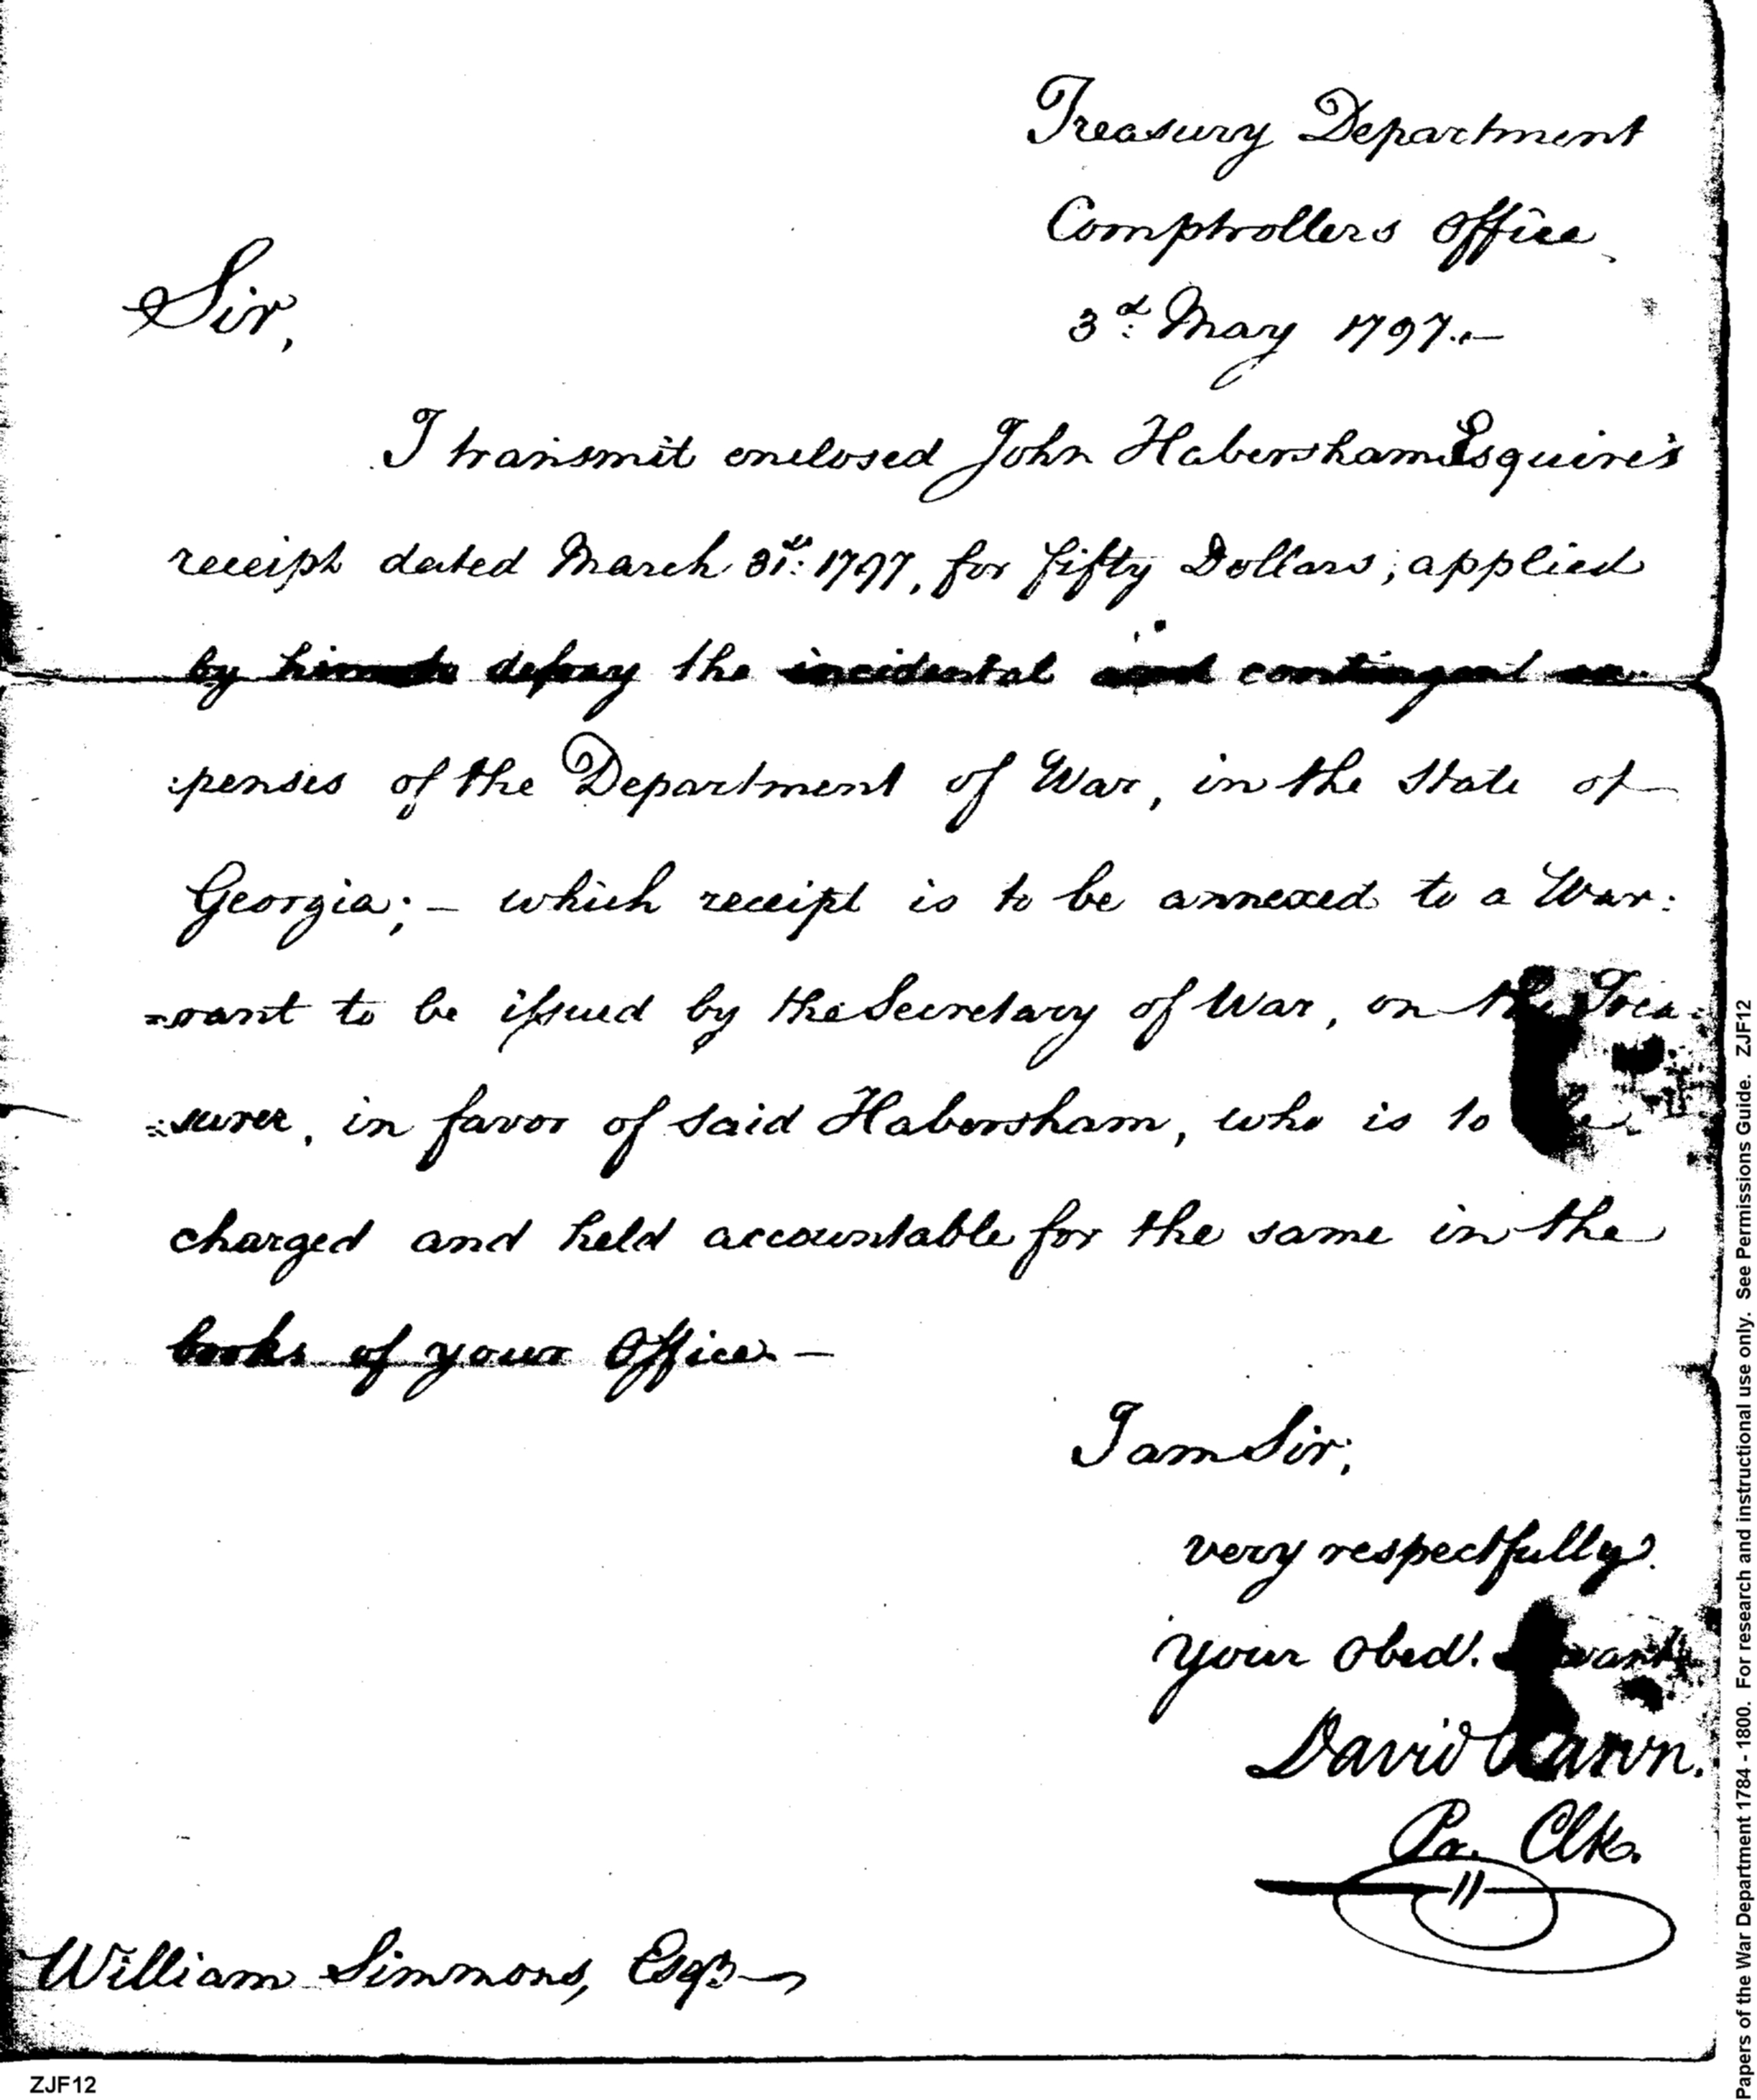 Treasury Department
Comptrollers Office
3d: May 1797.—
Sir,
I transmit enclosed John Habersham Esquire's
receipt dated March 31st: 1797, for fifty Dollars; applied
by him to defray the incidental and contingent ex
:penses of the Department of War, in the State of
Georgia; — which receipt is to be annexed to a War:
=rant to be issued by the Secretary of War, on the Trea:
=surer, in favor of said Habersham, who is to be
charged and held accountable for the same in the
books of your Office. —
I am Sir;
very respectfully
your Obedt. Servant
David
Pr. Clk.
William Simmons, Esqr.
Papers of the War Department 1784 - 1800. For research and instructional use only. See Permissions Guide. ZJF12
ZJF12